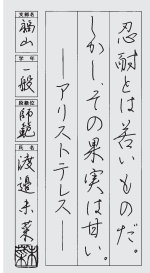 忍耐とは苦いものだ。
しかし、その果実は甘い。
―アリストテレス―
支部名
福山
学年
一般
段級位
師範
氏名
渡邉未菜